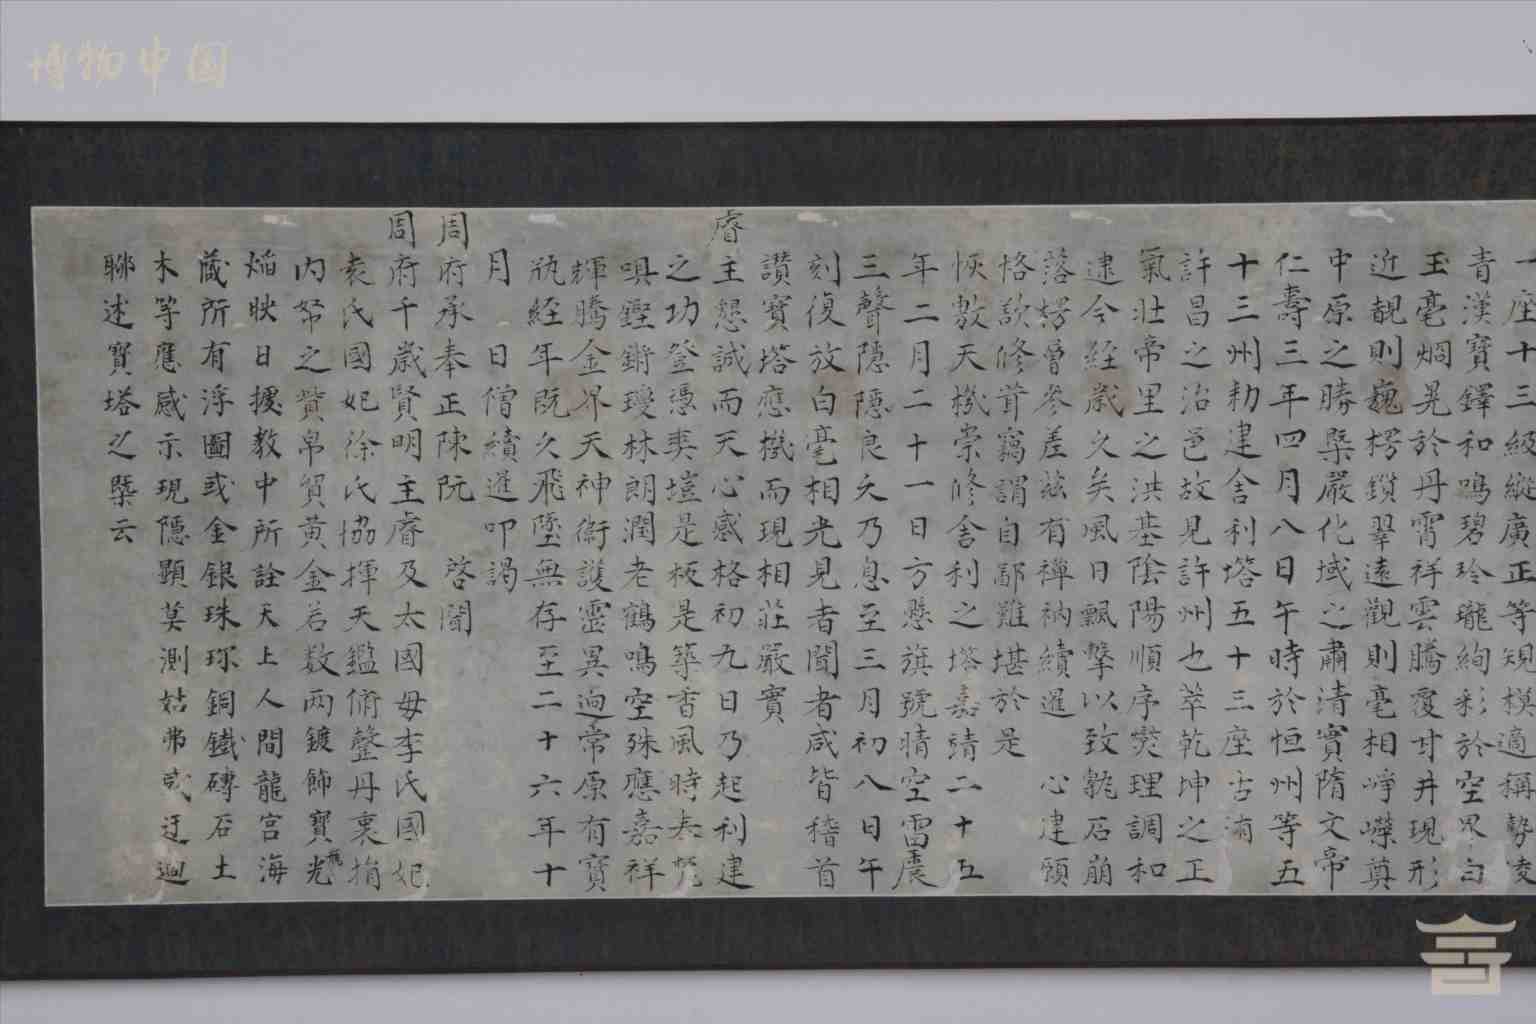 博物中国
一座十三級縱廣正等規模適稱勢凌
青漢寶鐸和鳴碧玲瓏絢彩於空界白
玉毫烱晃於丹霄祥雲騰覆寸井現形
近覩則巍楞鎖翠遠觀則毫相崢嶸奠
中原之勝槩嚴化域之肅清實隋文帝
仁壽三年四月八日午時於恒州等五
十三州勑建舍利塔五十三座古洧
許昌之治邑故見許州也萃乾坤之正
氣壯帝里之洪基陰陽順序燮理調和
逮今經歲久矣風日飄擊以致甎石崩
落楞層參差茲有禪衲續暹 心建願
恪欲修葺竊謂自鄙難堪於是
恢敷天機崇修舍利之塔嘉靖二十五
年二月二十一日方懸旗號晴空雷震
三聲隱隱良久乃息至三月初八日午
刻復放白毫相光見者聞者咸皆稽首
讚寶塔應機而現相莊嚴實
睿主懇誠而天心感格初九日乃起利建
之功登憑爽塏是板是築香風時奏梵
唄鏗鏘瓊林朗潤老鶴鳴空殊應嘉祥
輝騰金界天神衛護靈異迥常原有寶
瓶經年既久飛墜無存至二十六年十
月 日僧續暹叩謁
周府承奉正陳阮 啓聞
周府千歲賢明主睿及太國母李氏國妃
袁氏國妃徐氏協揮天鑑脩整丹裏捐
內帑之貲帛貿黃金若数兩鍍飾寶瓶光
焰映日據教中所詮天上人間龍宮海
藏所有浮圖或金銀珠琛銅鐵磚石土
木等應感示現隱顯莫測姑弗或迂迴
聊述寶塔之槩云